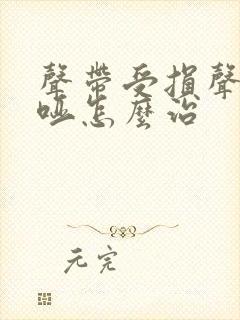 聲帶受損聲
啞怎麼治
元完